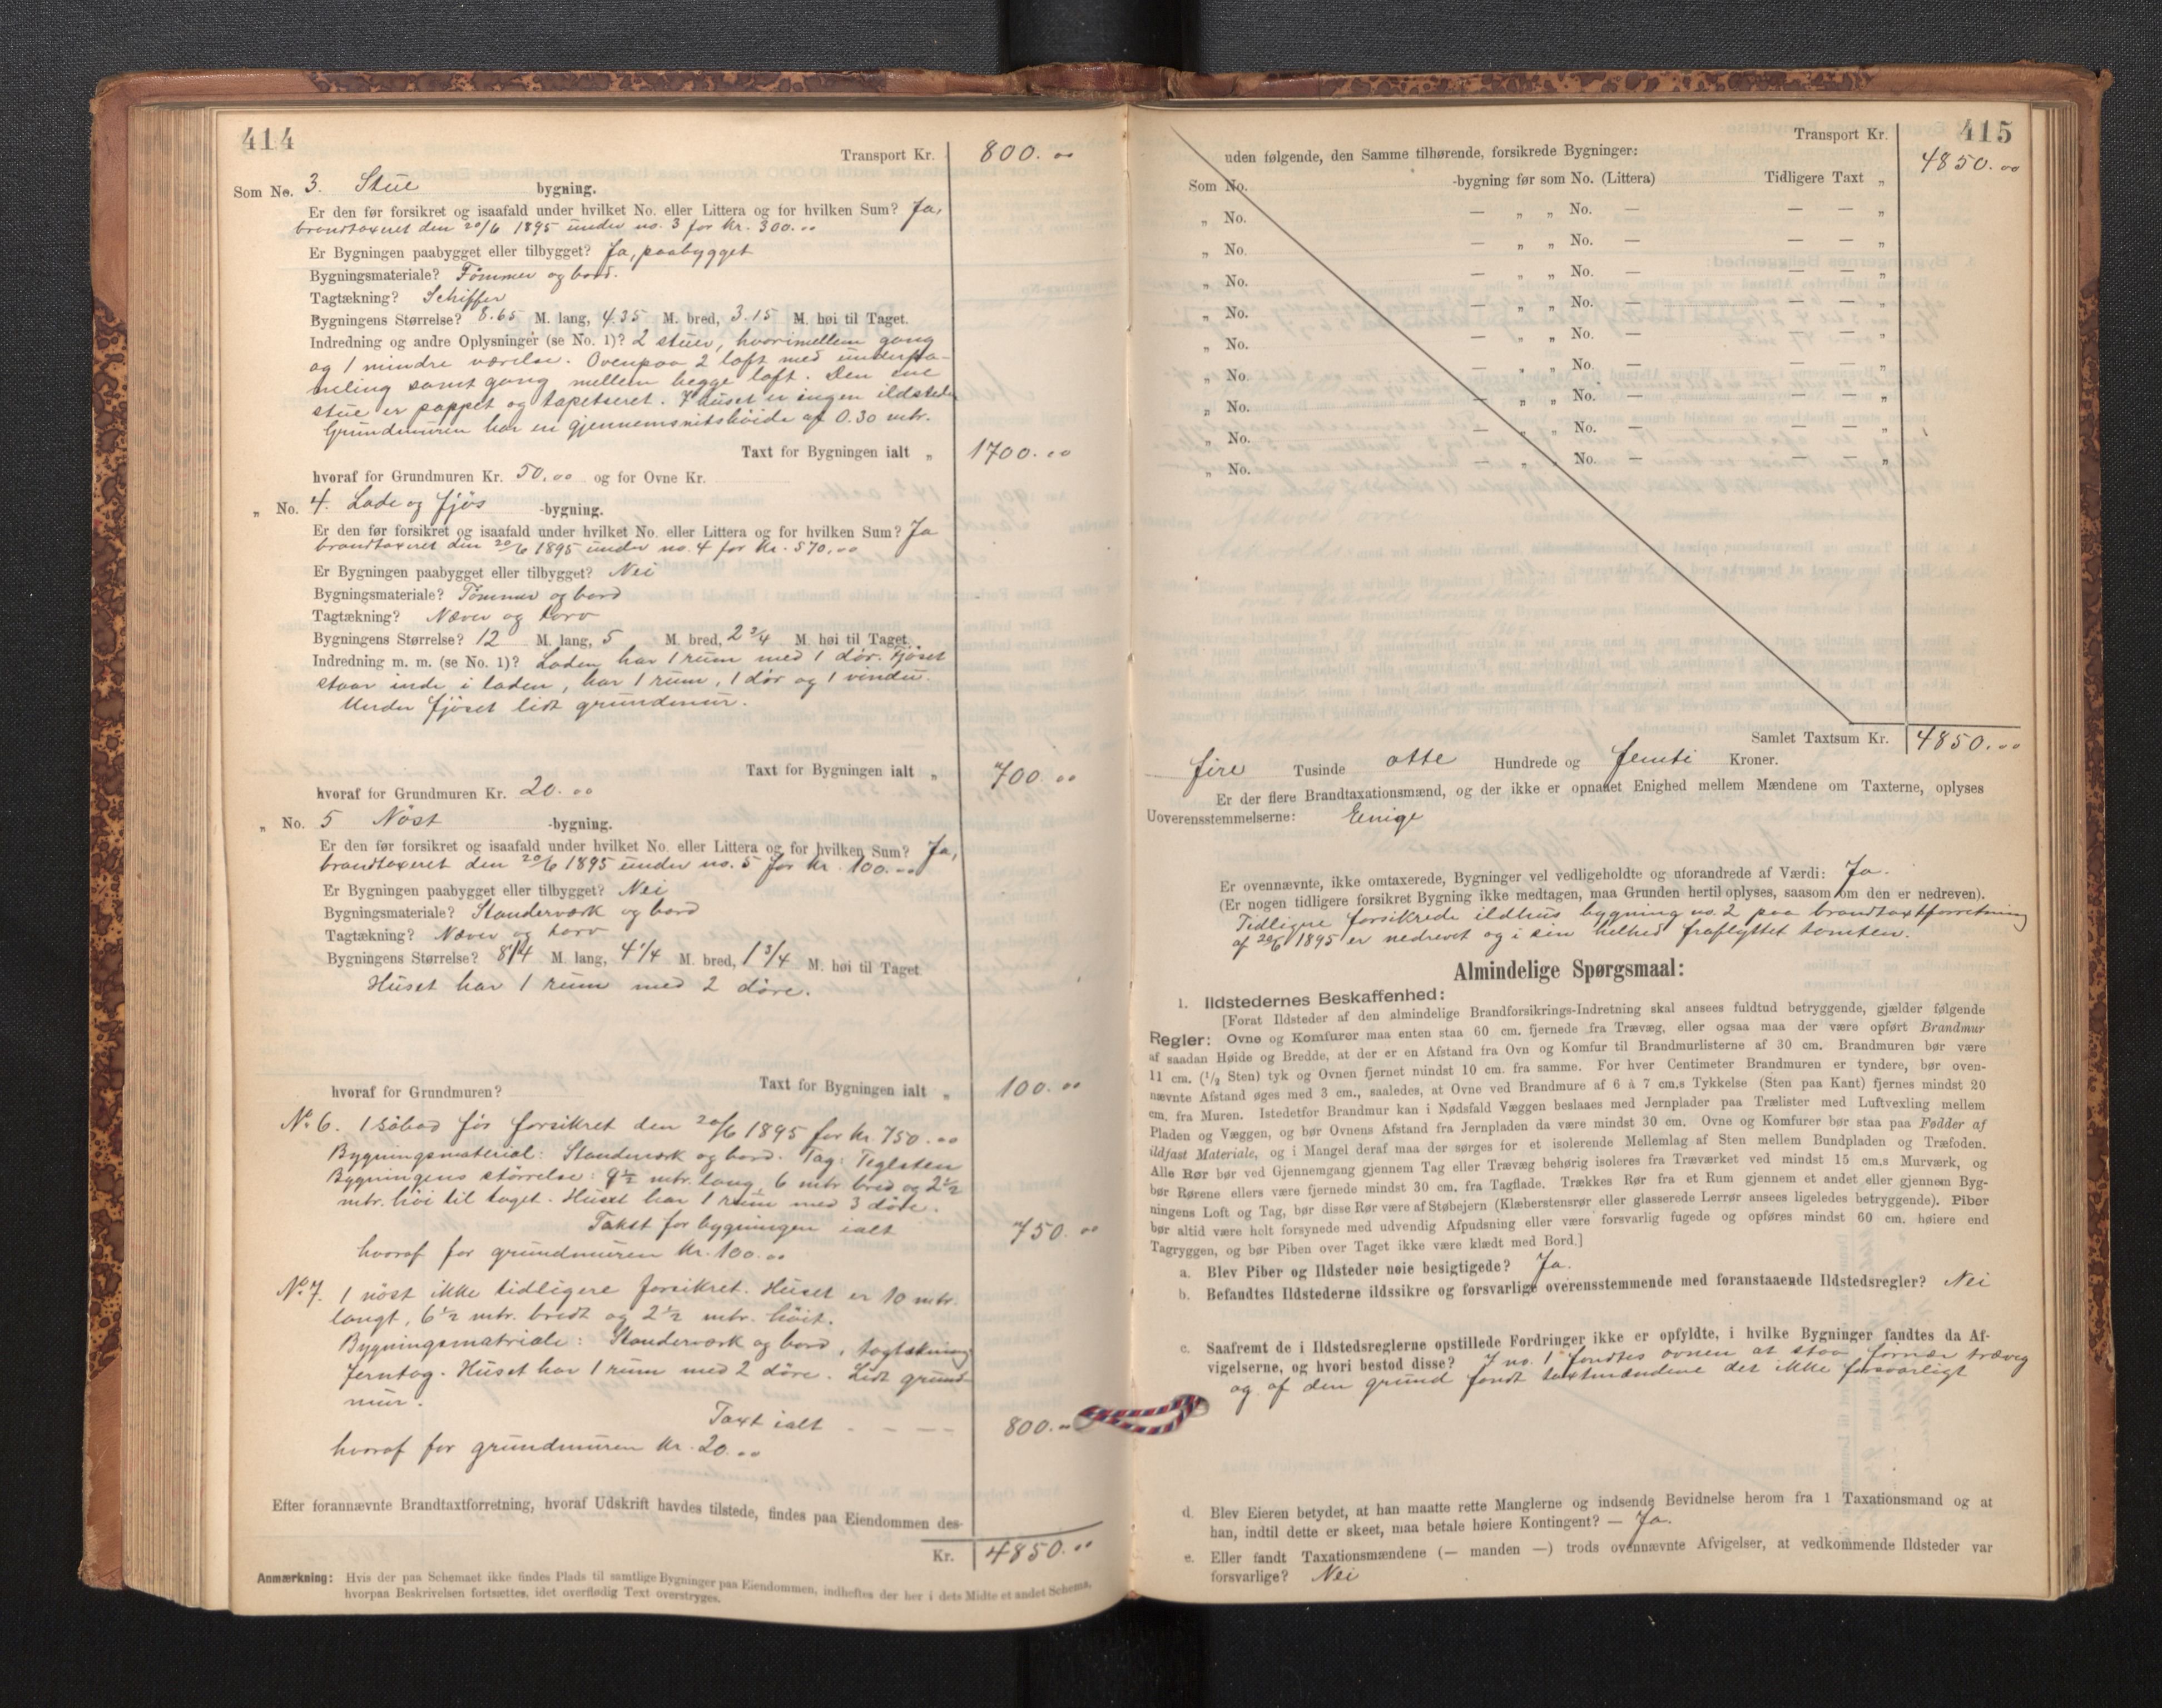 414
Transport Kr. 800.00
Som No. 3. Stue bygning.
Er den før forsikret og isaafald under hvilket No. eller Littera og for hvilken Sum? Ja,
brandtaxeret den 20/6 1895 under no. 3 for Kr. 300.00
Er Bygningen paabygget eller tilbygget? Ja, paabygget
Bygningsmateriale? Tømmer og bord.
Tagtækning? Schiffer
Bygningens Størrelse? 8.65 M. lang, 4.35 M. bred, 3.15 M. høi til Taget.
Indredning og andre Oplysninger (se No. 1)? 2 stuer, hvorimellem gang
og 1 mindre værelse. Ovenpaa 2 loft med underpa-
neling samt gang mellem begge loft. Den ene
stue er pappet og tapetseret. I huset er ingen ildsteder
Grundmuren har en gjennemsnitshöide af 0.30 mtr.
Taxt for Bygningen ialt „ 1700.00
hvoraf for Grundmuren Kr. 50.00 og for Ovne Kr.
„ No. 4. Lade og fjös -bygning.
Er den før forsikret og isaafald under hvilket No. eller Littera og for hvilken Sum? Ja
brandtaxeret den 20/6 1895 under no. 4 for Kr. 570.00
Er Bygningen paabygget eller tilbygget? Nei
Bygningsmateriale? Tømmer og bord
Tagtækning? Næver og torv
Bygningens Størrelse? 12 M. lang, 5 M. bred, 2 3/4 M. høi til Taget
Indredning m. m. (se No. 1)? Laden har 1 rum med 1 dör. Fjöset
staar inde i laden, har 1 rum, 1 dör og 1 vindu.
Under fjöset lidt grundmur.
Taxt for Bygningen ialt „ 700.00
hvoraf for Grundmuren Kr. 20.00
„ No. 5 Nöst -bygning.
Er den før forsikret og isaafald under hvilket No. eller Littera og for hvilken Sum? Ja,
brandtaxeret den 20/6 1895 under no. 5 for Kr. 100.00
Er Bygningen paabygget eller tilbygget? Nei
Bygningsmateriale? Standerværk og bord
Tagtækning? Næver og torv
Bygningens Størrelse? 8 1/4 M. lang, 4 1/4 M. bred, 1 3/4 M. høi til Taget
Huset har 1 rum med 2 döre.
Taxt for Bygningen ialt „ 100.00
hvoraf for Grundmuren?
No. 6. 1 söbod för forsikret den 20/6 1895 for kr. 750.00
Bygningsmaterial: Standerværk og bord. Tag: Teglsten
Bygningens störrelse: 9 1/2 mtr. lang, 6 mtr. bred og 2 1/2
mtr. höi til taget. Huset har 1 rum med 3 döre.
Takst for bygningen ialt 750.00
hvoraf for grundmuren Kr. 100.00
No. 7. 1 nöst ikke tidligere forsikret. Huset er 10 mtr.
langt, 6 1/2 mtr. bredt og 2 1/2 mtr. höit.
Bygningsmatriale: Standerværk og bord, tagtækning
Jerntag. Huset har 1 rum med 2 döre. Lidt grund-
mur.
Taxt ialt - - - - 800.00
hvoraf for grundmuren Kr. 20.00
Efter forannævnte Brandtaxtforretning, hvoraf Udskrift havdes tilstede, findes paa Eiendommen des-
Kr. 4850.00
Anmærkning: Hvis der paa Schemaet ikke findes Plads til samtlige Bygninger paa Eiendommen, indheftes der her i dets Midte et andet Schema,
hvorpaa Beskrivelsen fortsættes, idet overflødig Text overstryges.
415
Transport Kr. 4850.00
uden følgende, den Samme tilhørende, forsikrede Bygninger:
Som No. -bygning før som No. (Littera) Tidligere Taxt „
„ No. — „ „ No. — — — „
„ No. — „ „ No. — — — „
„ No. — „ „ No. — — — „
„ No. — „ „ No. — — — „
„ No. — „ „ No. — — — „
„ No. — „ „ No. — — — „
„ No. — „ „ No. — — — „
„ No. — „ „ No. — — — „
„ No. — „ „ No. — — — „
Samlet Taxtsum Kr. 4850.00
fire Tusinde otte Hundrede og femti Kroner.
Er der flere Brandtaxationsmænd, og der ikke er opnaaet Enighed mellem Mændene om Taxterne, oplyses
Uoverensstemmelserne: Enige
Er ovennævnte, ikke omtaxerede, Bygninger vel vedligeholdte og uforandrede af Værdi: Ja.
(Er nogen tidligere forsikret Bygning ikke medtagen, maa Grunden hertil oplyses, saasom om den er nedreven).
Tidligere forsikrede ildhus bygning no. 2 paa brandtaxtforretning
af 20/6 1895 er nedrevet og i sin helhed fraflyttet tomten.
Almindelige Spørgsmaal:
1. Ildstedernes Beskaffenhed:
[Forat Ildsteder af den almindelige Brandforsikrings-Indretning skal ansees fuldtud betryggende, gjælder følgende
Regler: Ovne og Komfurer maa enten staa 60 cm. fjernede fra Trævæg, eller ogsaa maa der være opført Brandmur
af saadan Høide og Bredde, at der er en Afstand fra Ovn og Komfur til Brandmurlisterne af 30 cm. Brandmuren bør være
11 cm. (1/2 Sten) tyk og Ovnen fjernet mindst 10 cm. fra samme. For hver Centimeter Brandmuren er tyndere, bør oven-
nævnte Afstand øges med 3 cm., saaledes, at Ovne ved Brandmure af 6 à 7 cm.s Tykkelse (Sten paa Kant) fjernes mindst 20
cm. fra Muren. Istedetfor Brandmur kan i Nødsfald Væggen beslaaes med Jernplader paa Trælister med Luftvexling mellem
Pladen og Væggen, og bør Ovnens Afstand fra Jernpladen da være mindst 30 cm. Ovne og Komfurer bør staa paa Fødder af
ildfast Materiale, og i Mangel deraf maa der sørges for et isolerende Mellemlag af Sten mellem Bundpladen og Træfoden.
Alle Rør bør ved Gjennemgang gjennem Tag eller Trævæg behørig isoleres fra Træværket ved mindst 15 cm.s Murværk, og
bør Rørene ellers være fjernede mindst 30 cm. fra Tagflade. Trækkes Rør fra et Rum gjennem et andet eller gjennem Byg-
ningens Loft og Tag, bør disse Rør være af Støbejern (Klæberstensrør eller glasserede Lerrør ansees ligeledes betryggende). Piber
bør altid være helt forsynede med udvendig Afpudsning eller være forsvarlig fugede og opføres mindst 60 cm. høiere end
Tagryggen, og bør Piben over Taget ikke være klædt med Bord.]
a. Blev Piber og Ildsteder nøie besigtigede? Ja.
b. Befandtes Ildstederne ildssikre og forsvarlige overensstemmende med foranstaaende Ildstedsregler? Nei
c. Saafremt de i Ildstedsreglerne opstillede Fordringer ikke er opfyldte, i hvilke Bygninger fandtes da Af-
vigelserne, og hvori bestod disse? I no. 1 fandtes ovnen at staa fornær trævæg
og af den grund fandt taxtmændene det ikke forsvarligt
d. Blev Eieren betydet, at han maatte rette Manglerne og indsende Bevidnelse herom fra 1 Taxationsmand og at
han, indtil dette er skeet, maa betale høiere Kontingent? — Ja.
e. Eller fandt Taxationsmændene (— manden —) trods ovennævnte Afvigelser, at vedkommende Ildsteder var
forsvarlige? Nei